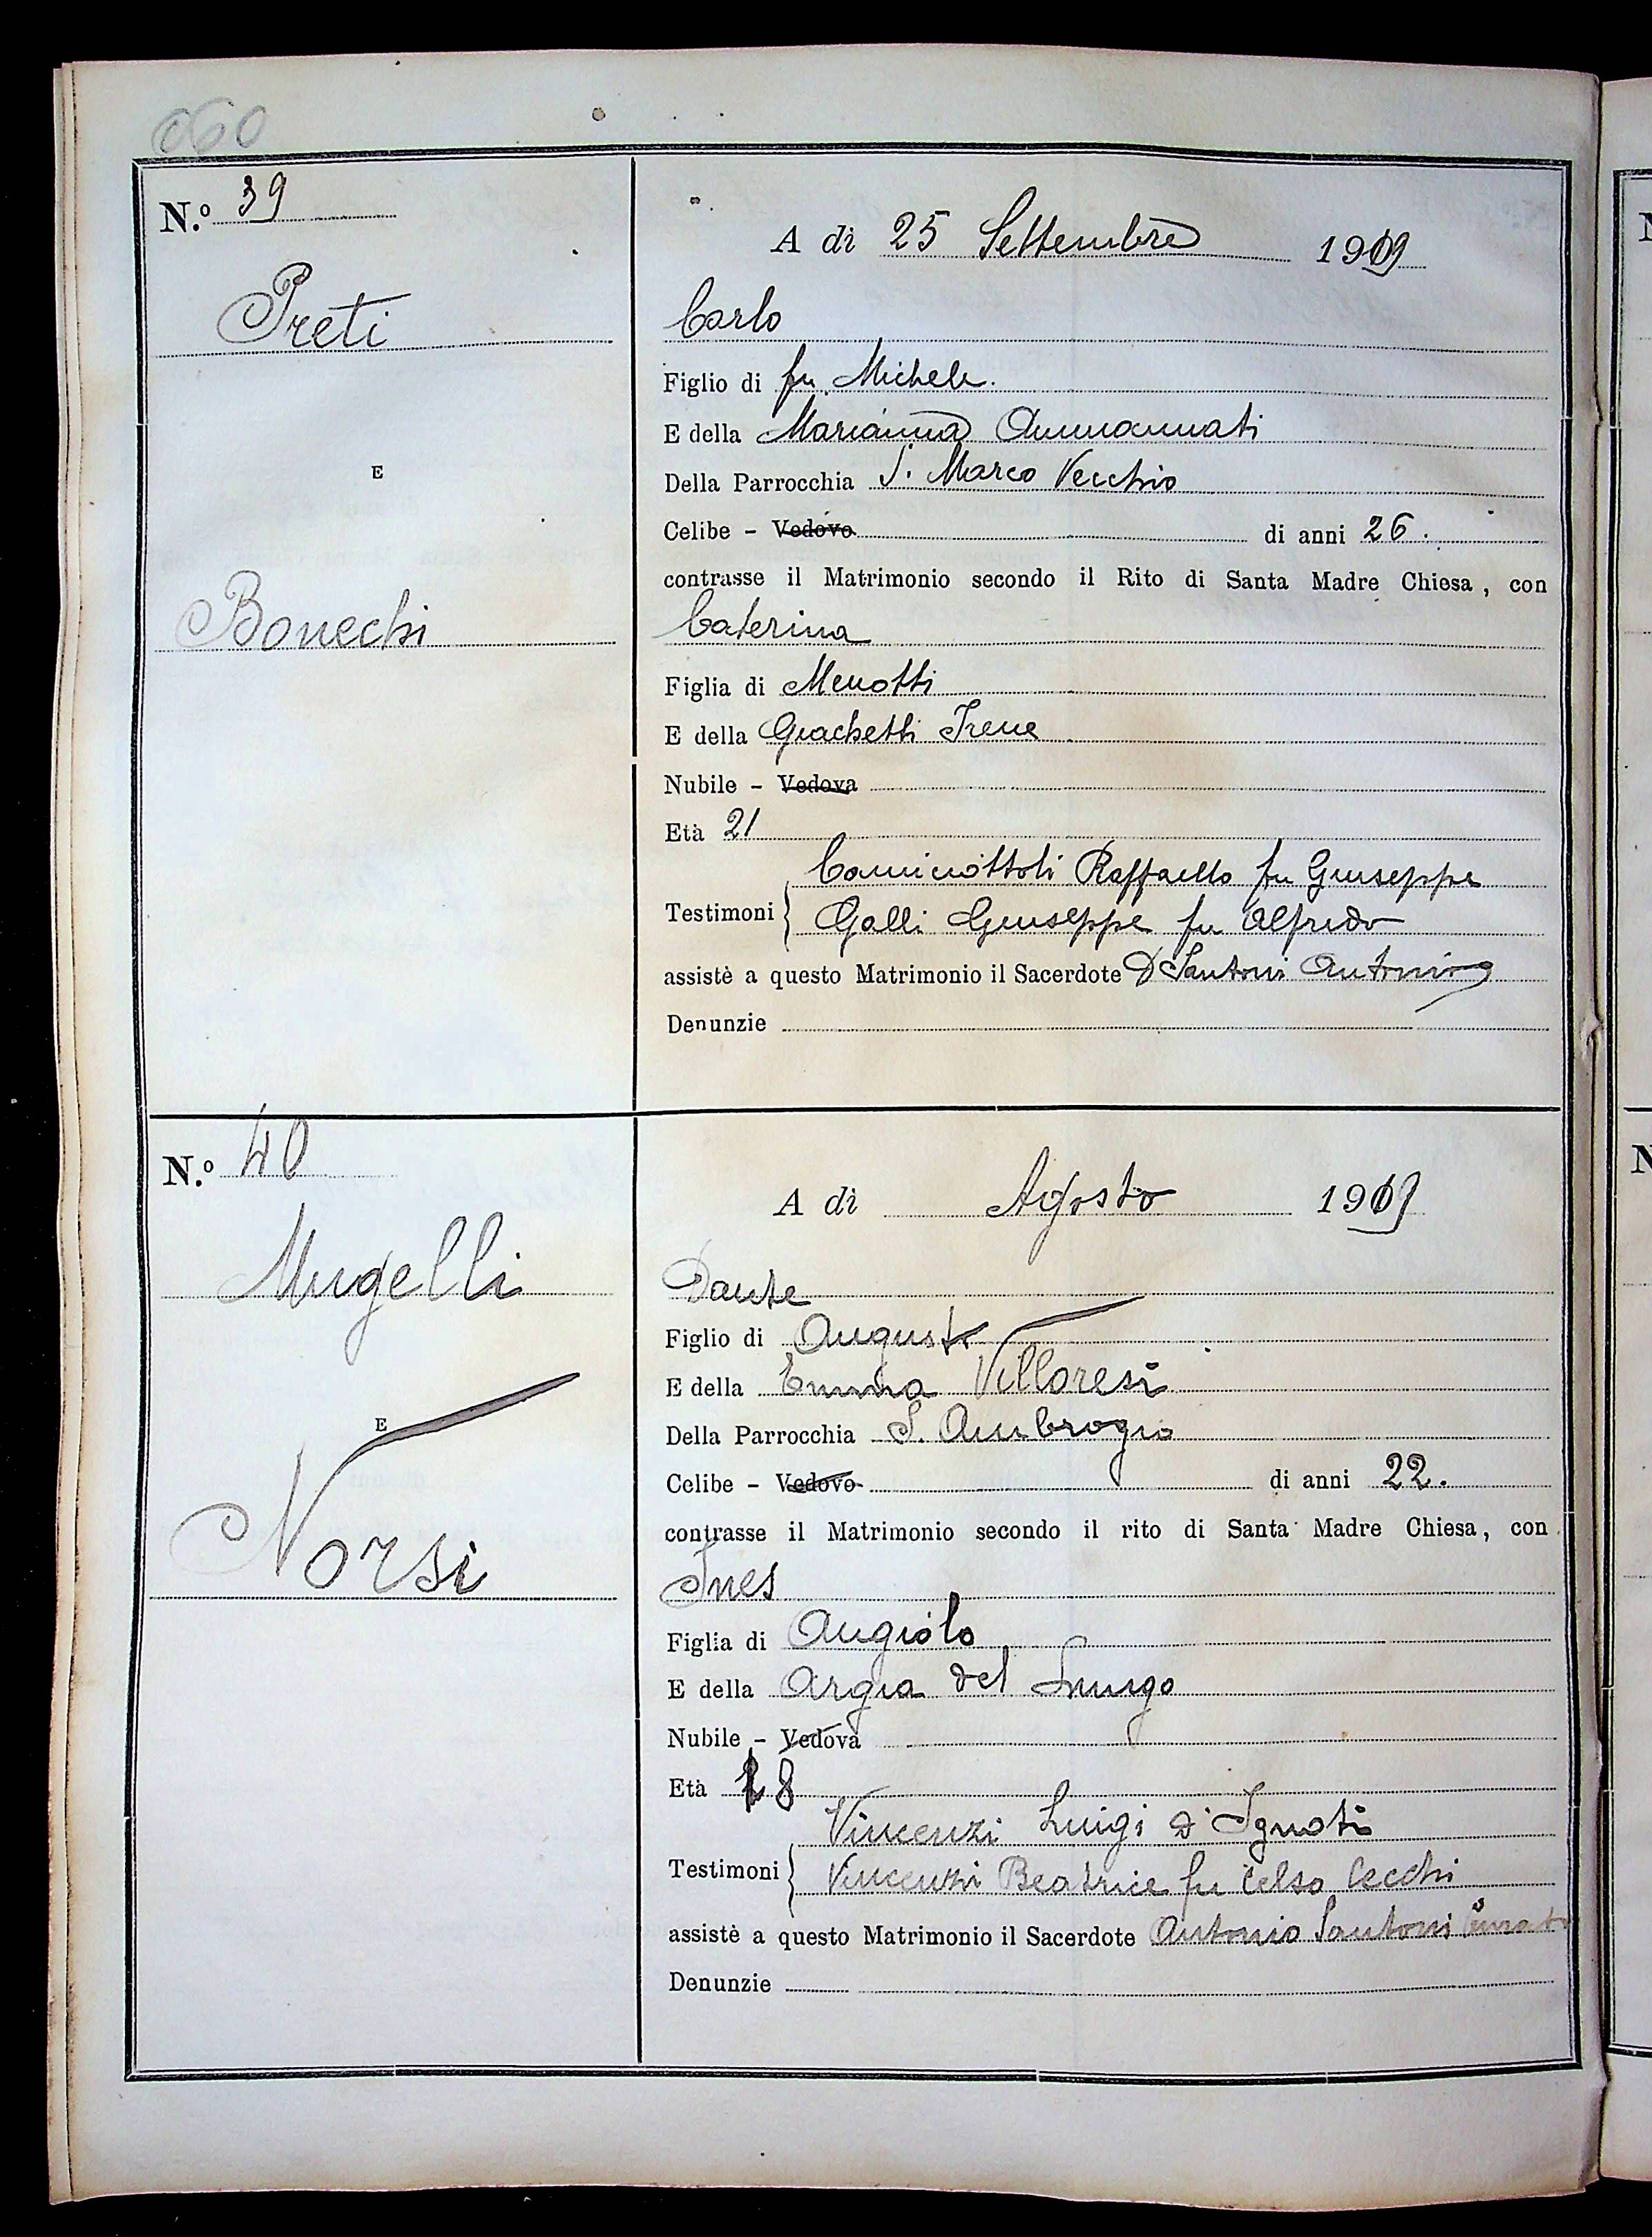 060
N.º 39
A dì 25 Settembre 1919
Preti
Carlo
Figlio di fu Michele.
E della Marianna Ammannati
Della Parrocchia S. Marco Vecchio
E
Celibe – Vedovo di anni 26.
contrasse il Matrimonio secondo il Rito di Santa Madre Chiesa, con
Bonechi
Caterina
Figlia di Menotti
E della Giachetti Irene
Nubile – Vedova
Età 21
Raffaello fu Giuseppe
Testimoni Galli Giuseppe fu Alfredo
assistè a questo Matrimonio il Sacerdote D Santoni Antonio
Denunzie
N.º 40
A dì Agosto 1919
Mugelli
Dante
Figlio di Augusto
E della Emma Villoresi
Della Parrocchia S. Ambrogio
E
Celibe – Vedovo di anni 22.
contrasse il Matrimonio secondo il rito di Santa Madre Chiesa, con
Norsi
Ines
Figlia di Angiolo
E della Argia del Lungo
Nubile – Vedova
Età 18
Vincenzi Luigi d'Ignoti
Testimoni Vincenzi Beatrice fu Celso Cecchi
assistè a questo Matrimonio il Sacerdote Antonio Santoni Curato
Denunzie